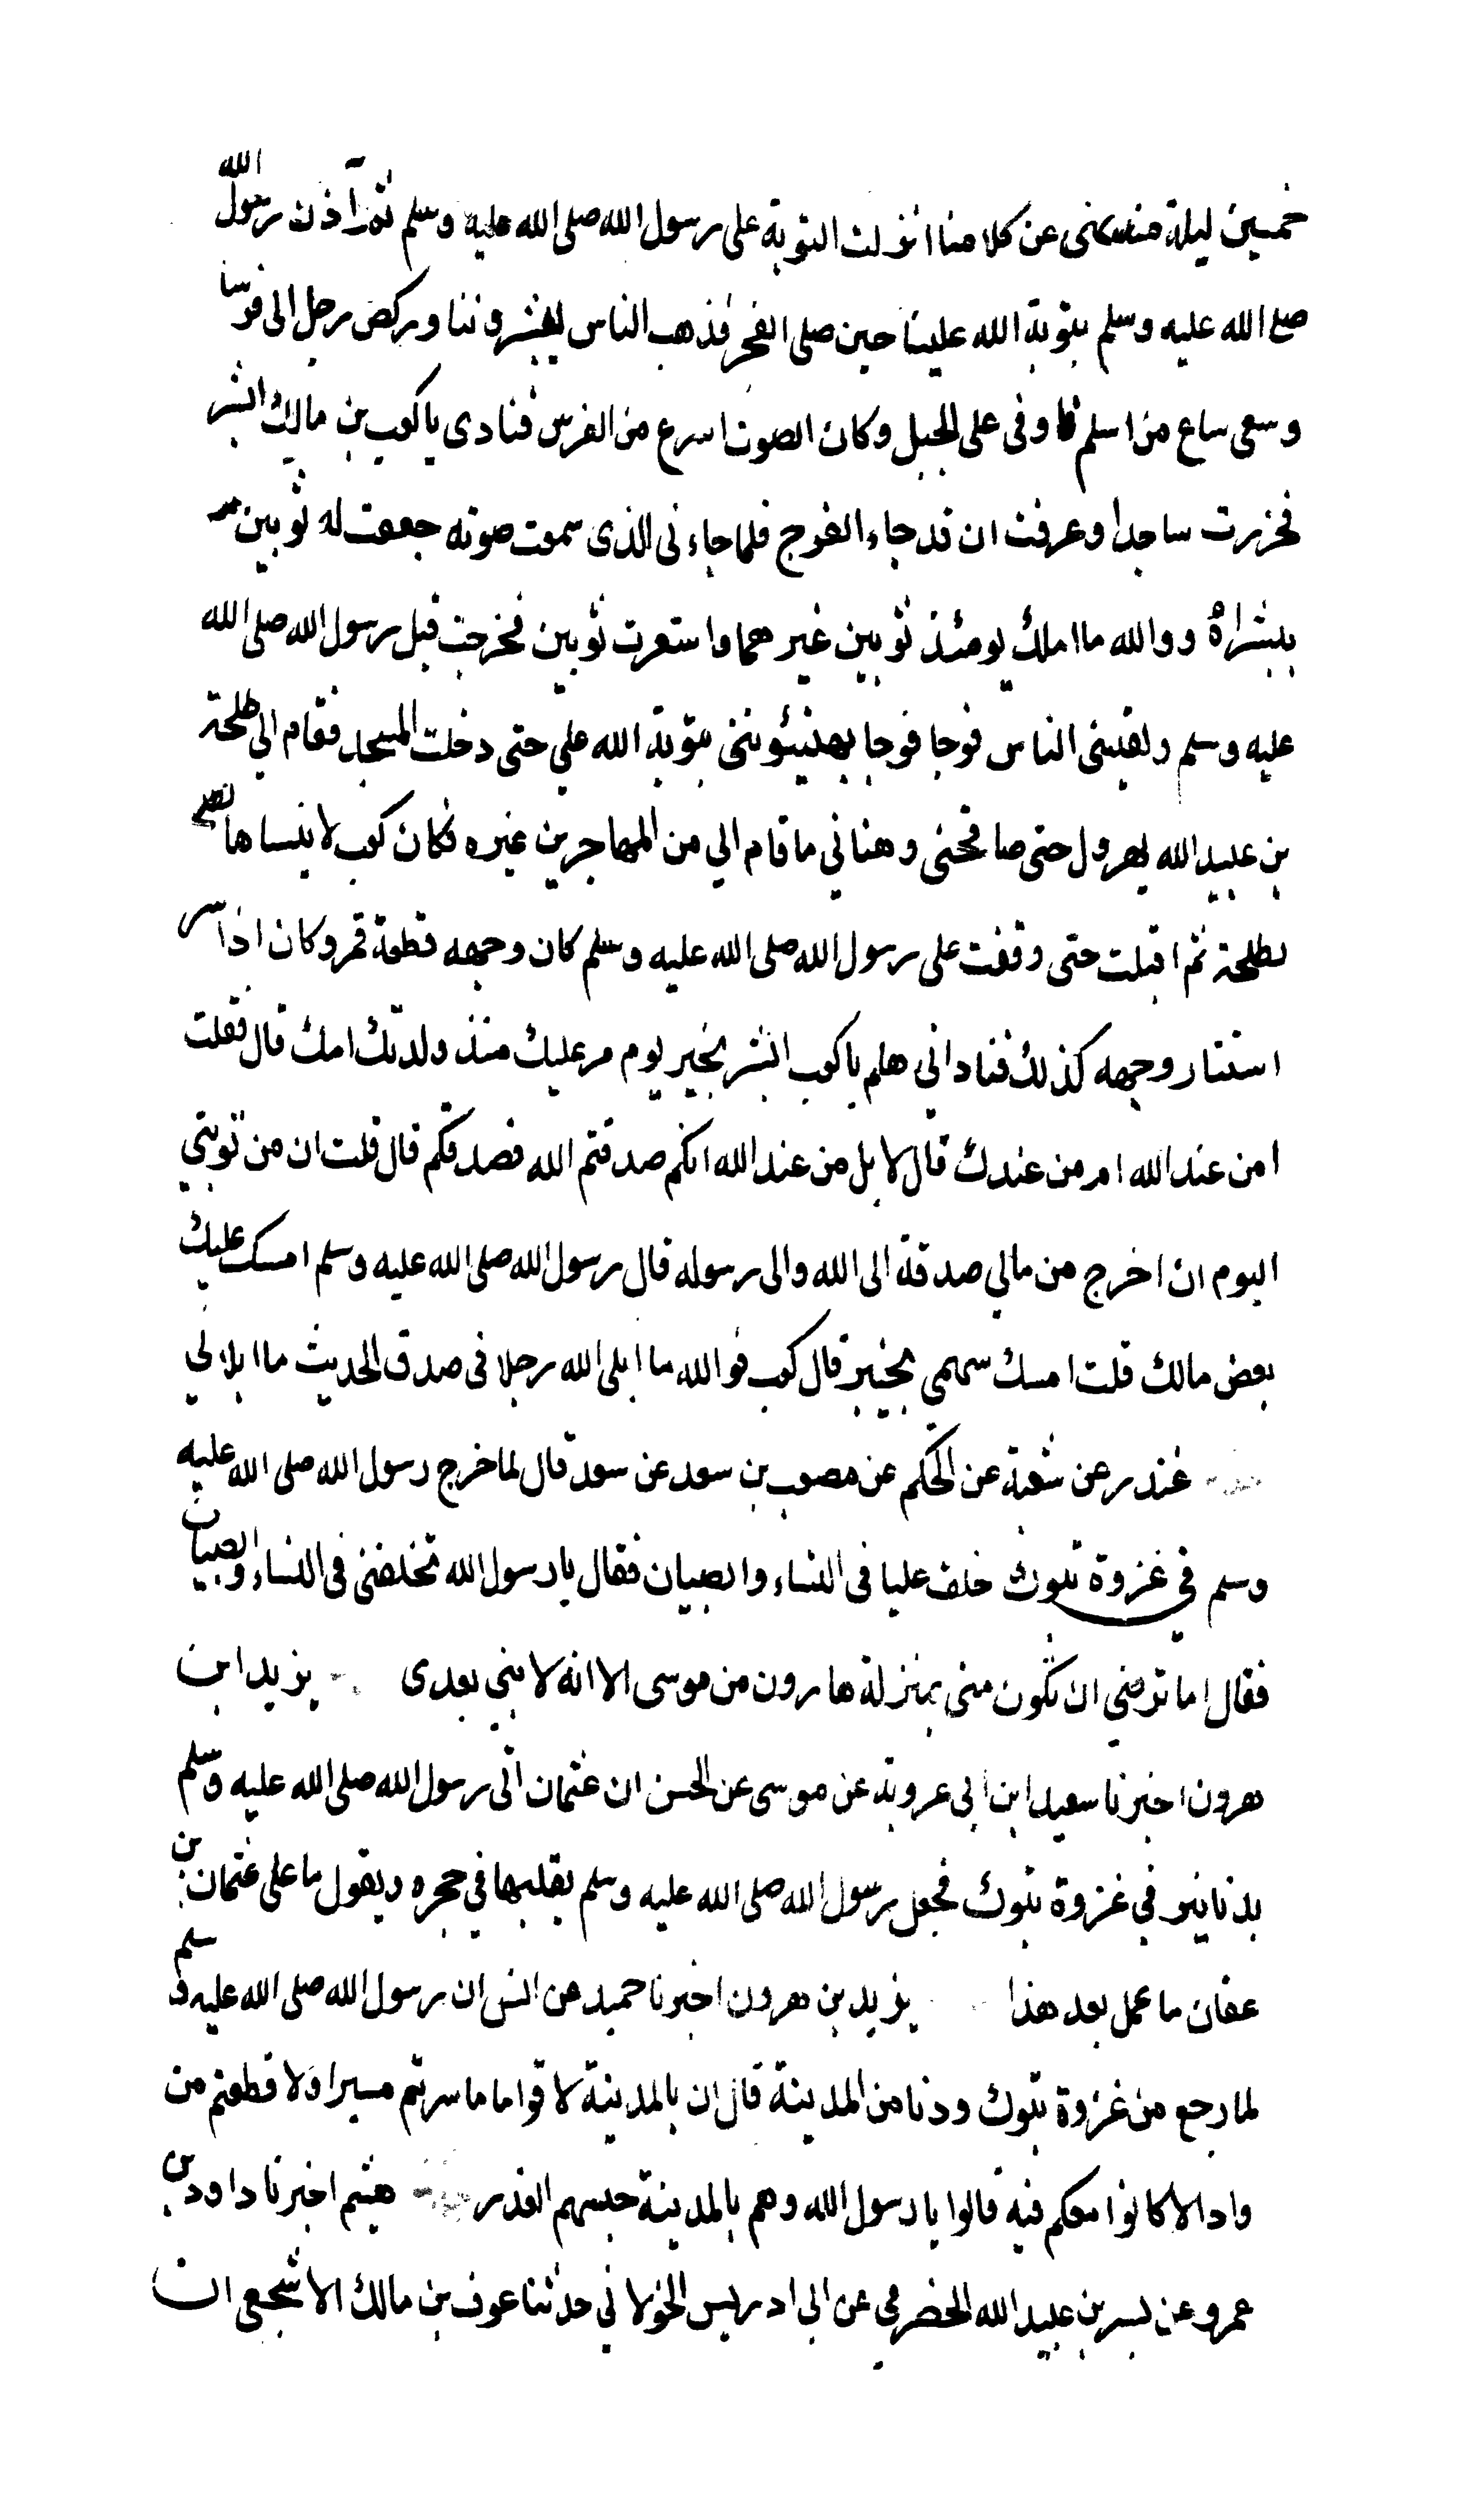 خمسين ليلة من نهى عن كلامنا انزلت التوبة على رسول الله صلى الله عليه وسلم ثم آذن رسول الله
صلى الله عليه وسلم بتوبة الله علينا حين صلى الفجر فذهب الناس يبشروننا وركض رجل الى فرسا
وسعى ساع من اسلم فاوفى على الجبل وكان الصوت اسرع من الفرس فنادى يا كعب بن مالك ابشر
فخررت ساجدا وعرفت ان قد جاء الفرج فلما جاء نى الذى سمعت صوته جععت له ثوبين
ببشراه ووالله ما املك يومئذ ثوبين غيرهما واستعرت ثوبين فخرجت قبل رسول الله صلى الله
عليه وسلم ولقينى الناس فوجا فوجا يهنئوننى بتوبة الله علي حتى دخلت المسجد فقام الي طلحة
بن عبيد الله يهرول حتى صافحنى وهناني ما قام الي من المهاجرين غيره فكان كعب لا ينساها
لطلحة ثم اقبلت حتى وقفت على رسول الله صلى الله عليه وسلم كان وجهه قطعة قمر وكان اذا سر
استنار وجهه كذلك فنادانى هلم يا كعب ابشر بخير يوم مر عليك منذ ولدتك امك قال فقلت
امن عند الله ام من عندك قال لا بل من عند الله انكم صدقتم الله فصدقكم قال قلت ان من توبتي
اليوم ان اخرج من مالي صدقة الى الله والى رسوله قال رسول الله صلى الله عليه وسلم امسك عليك
بعض مالك قلت امسك سهمي بخيبر قال كعب فوالله ما ابلى الله رجلا فى صدق الحديث ما ابلاني
غندر عن شعبة عن الحكم عن مصعب بن سعد عن سعد قال لما خرج رسول الله صلى الله عليه
وسلم في غزوة تبوك خلف عليا فى النساء والصبيان فقال يا رسول الله تخلفنى فى النساء والصبيان
فقال اما ترضي ان تكون منى بمنزلة هارون من موسى الا انه لا نبي بعدى يزيد ابن
هرون اخبرنا سعيد ابن ابى عروبة عن موسى عن الحسن ان عثمان اتى رسول الله صلى الله عليه وسلم
بدنانير في غزوة تبوك فجعل رسول الله صلى الله عليه وسلم يقلبها في حجره ويقول ما على عثمان بن
عفان ما عمل بعد هذا يزيد بن هرون اخبرنا حميد عن انس ان رسول الله صلى الله عليه وسلم
لما رجع من غزوة تبوك ودنا من المدينة قال ان بالمدينة لاقواما ما سرتم مسيرا ولا قطعتم من
واد الا كانوا معكم فيه قالوا يا رسول الله وهم بالمدينة حبسهم العذر هشيم اخبرنا داود بن
عمرو عن بسر بن عبيد الله الحضرمي عن ابى ادريس الخولاني حدثنا عوف بن مالك الاشجعي ان